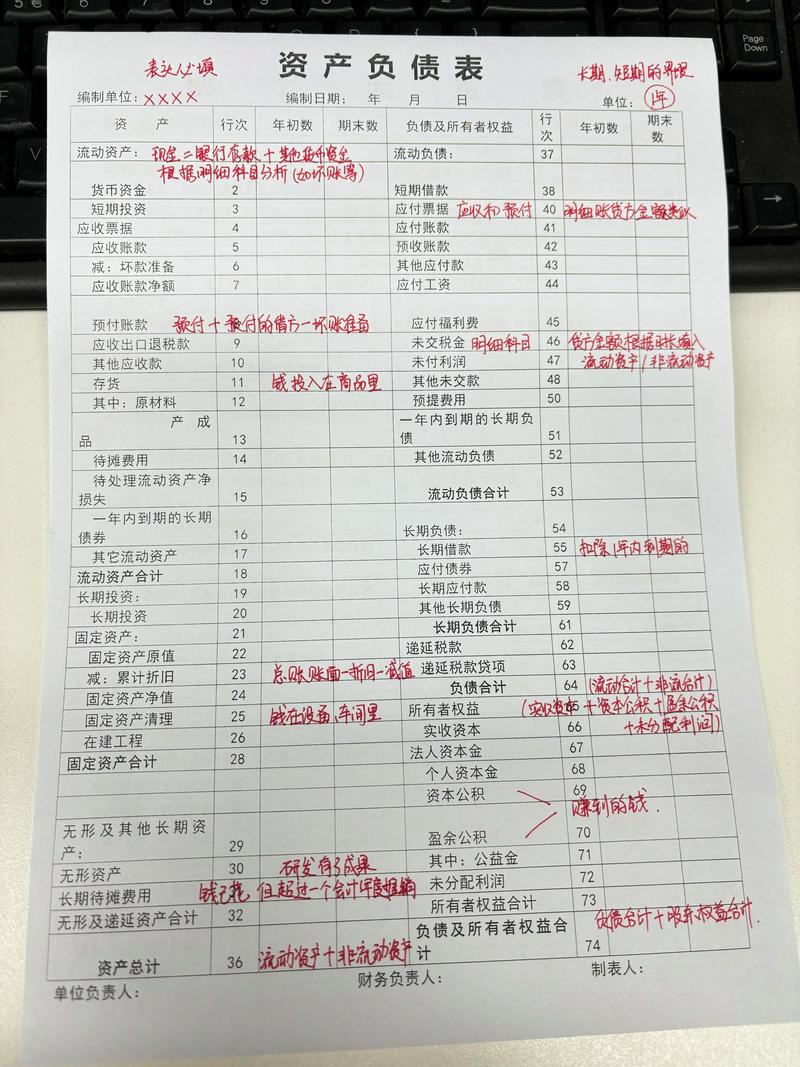 表头必填
资产负债表
长期、短期的界限
编制单位：XXXX 编制日期： 年 月 日 单位：1年
资 产 行次 年初数 期末数 负债及所有者权益 行次 年初数 期末数
流动资产： 现金=银行存款+其他货币资金 流动负债： 37
根据明细科目分析(如坏账等)
货币资金 2 短期借款 38
短期投资 3 应付票据 应收和预付 40 明细账贷方金额
应收票据 4 应付账款 41
应收账款 5 预收账款 42
减：坏款准备 6 其他应付款 43
应收账款净额 7 应付工资 44
预付账款 预付+预付的借方-坏账准备 应付福利费 45
应收出口退税款 9 未交税金 明细科目 46 贷方金额根据 填入
其他应收款 10 未付利润 47 流动资产/非流动资产
存货 11 钱投入在商品里 其他未交款 48
其中：原材料 12 预提费用 50
产成品 13 一年内到期的长期负债 51
待摊费用 14 其他流动负债 52
待处理流动资产净损失 15 流动负债合计 53
一年内到期的长期债券 16 长期负债： 54
其它流动资产 17 长期借款 55 扣除1年内到期的
流动资产合计 18 应付债券 57
长期投资： 19 长期应付款 58
长期投资 20 其他长期负债 59
固定资产： 21 长期负债合计 61
固定资产原值 22 递延税款 62
减：累计折旧 23 总账账面-折旧-减值 递延税款贷项 63
固定资产净值 24 负债合计 64 (流动合计+非流合计)
固定资产清理 25 钱在设备、车间里 所有者权益 65 (实收资本+资本公积+盈余公积
在建工程 26 实收资本 66 +未分配利润)
固定资产合计 28 法人资本金 67
个人资本金 68
资本公积 69
赚到的钱.
无形及其他长期资产： 29 盈余公积 70
无形资产 30 研发有了成果 其中：公益金 71
长期待摊费用 钱已花 但超过一个会计年度摊销 未分配利润 72
无形及递延资产合计 32 所有者权益合计 73
资产总计 36 流动资产+非流动资产 负债及所有者权益合计 74 负债合计+股东权益合计.
单位负责人： 财务负责人： 制表人：